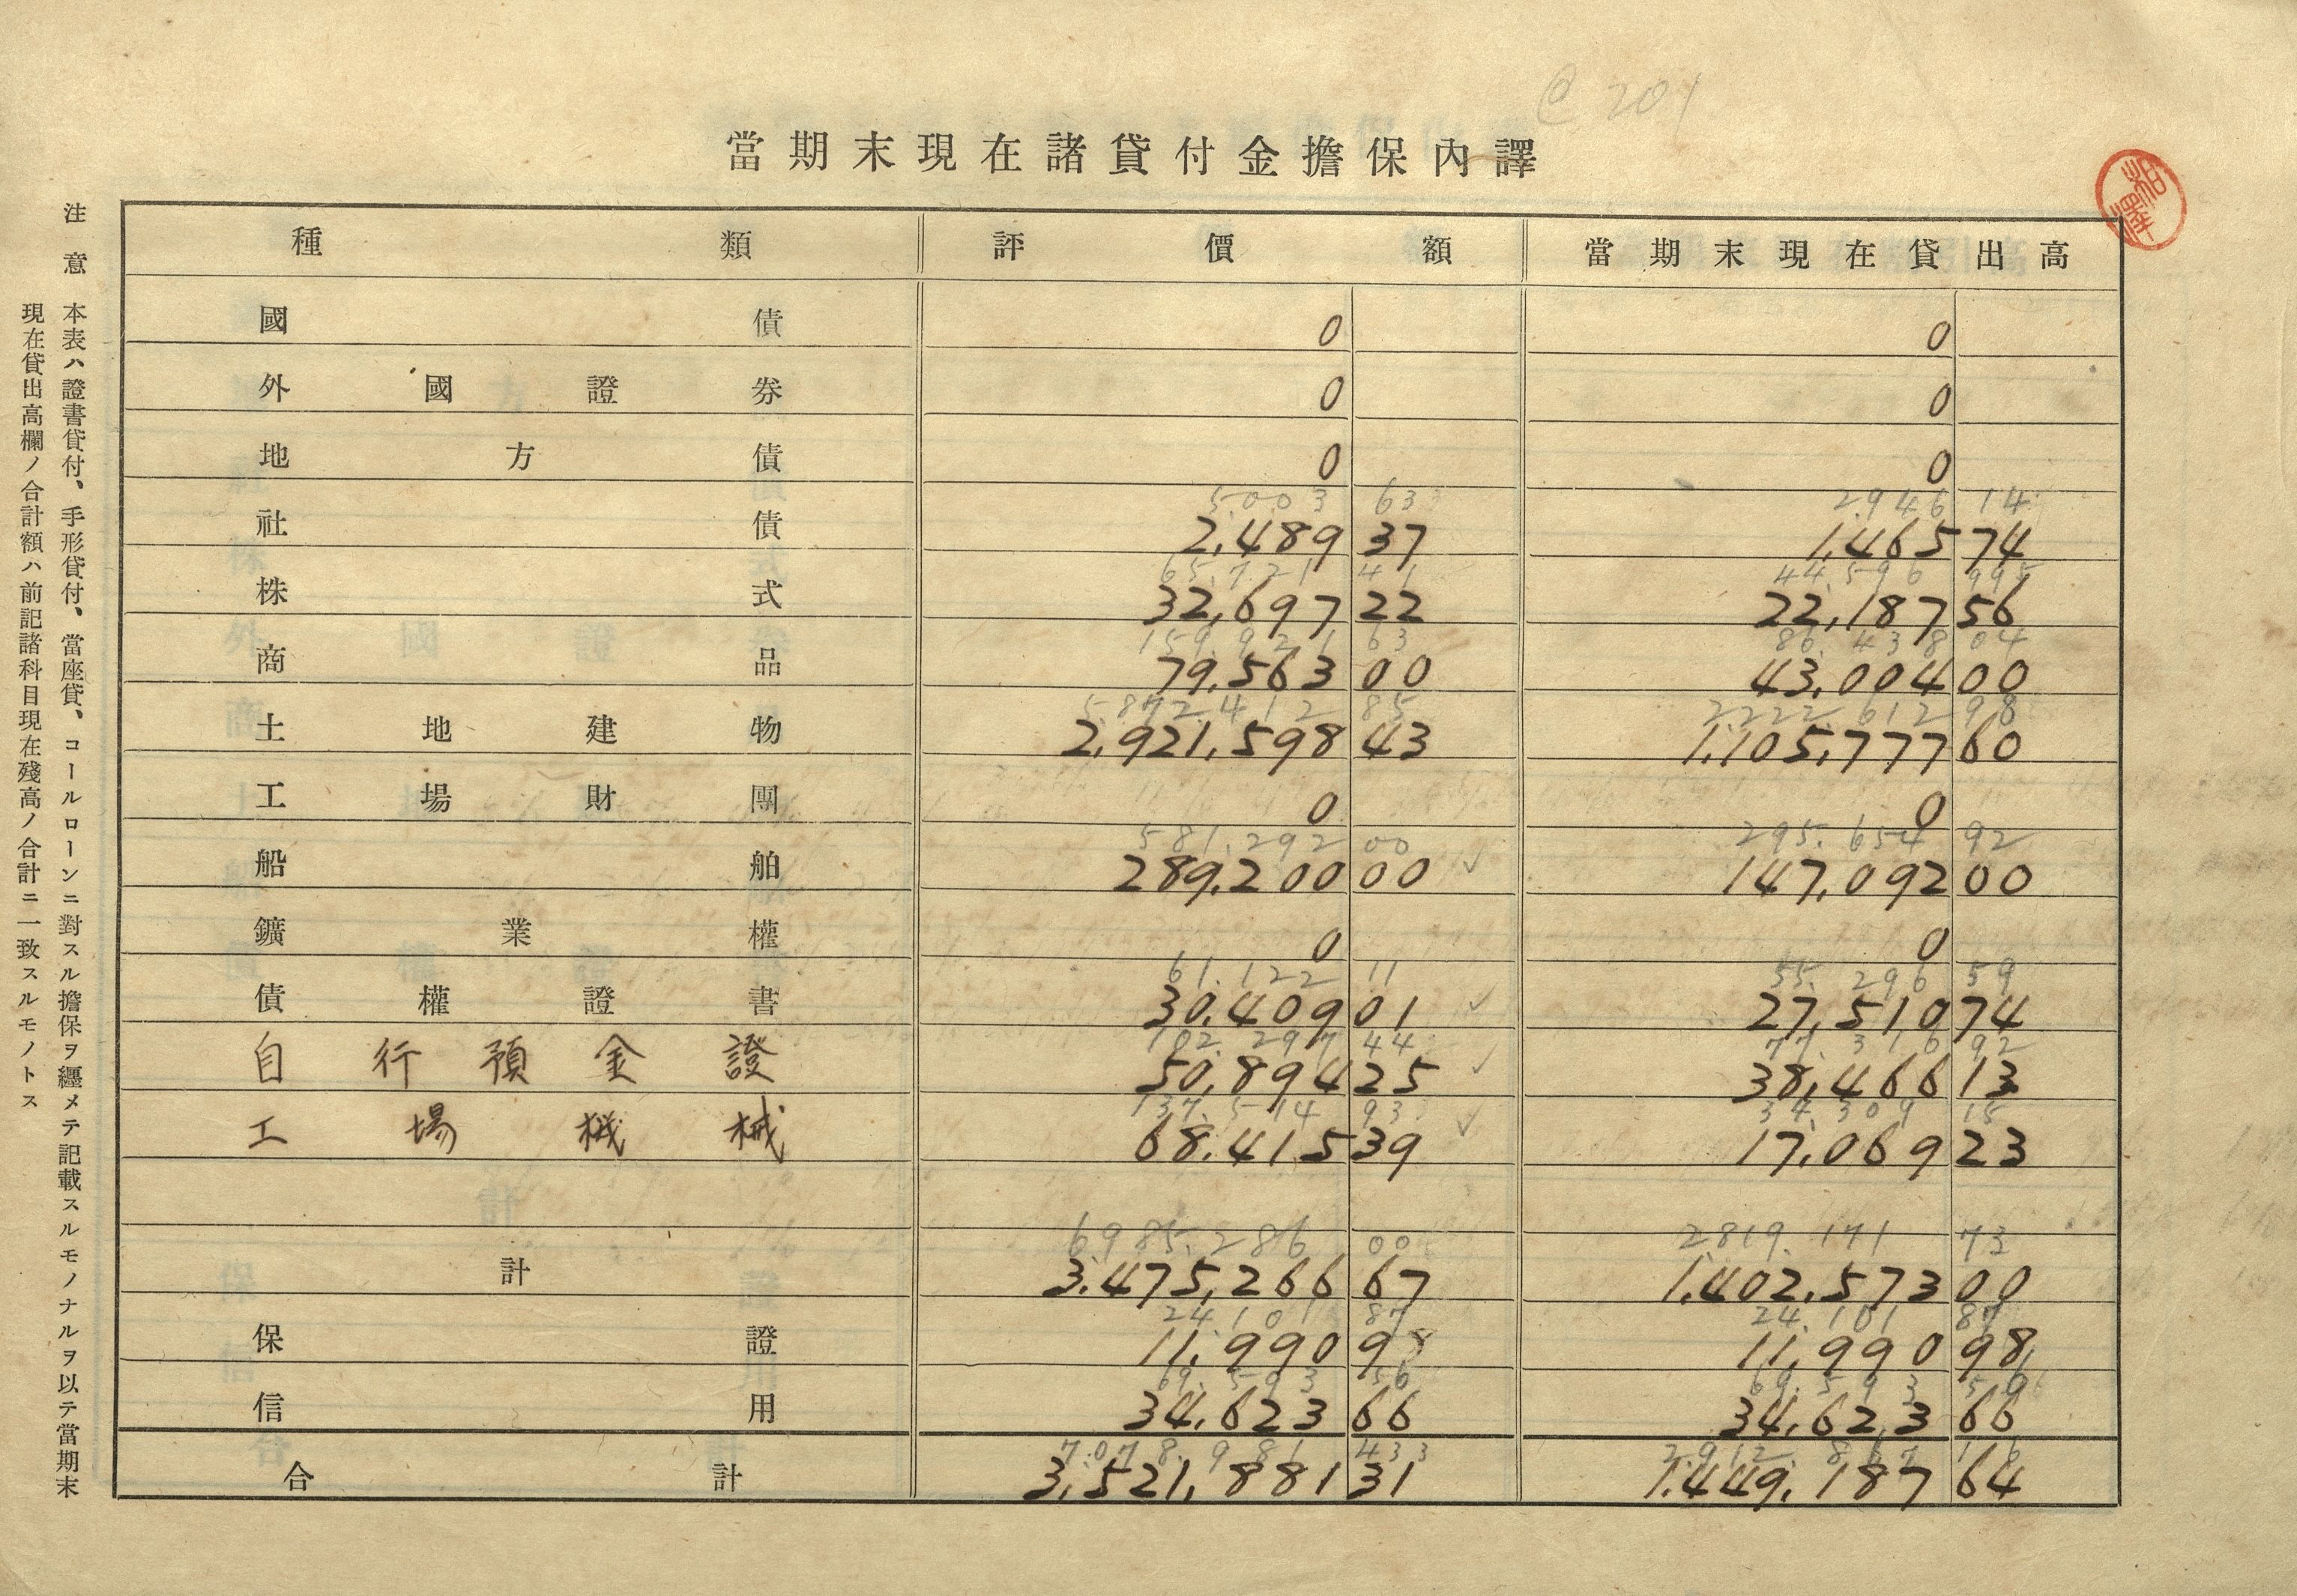 @ 201
當期末現在諸貸付金擔保內譯
種類 評價額 當期末現在貸出高
國債 0 0
外國證券 0 0
地方債 0 0
5.003 63 2.946 14
社債 2,489 37 1,465 74
65.721 41 44.596 99
株式 32,697 22 22,187 56
159.921 63 86.438 04
商品 79,563 00 43,004 00
5.872.412 85 2222.612 98
土地建物 2,921,598 43 1,105,777 60
工場財團 0 0
581.292 00 295.654 92
船舶 289,200 00 147,092 00
鑛業權 0 0
61.122 11 55.296 59
債權證書 30,409 01 27,510 74
102.297 44 77.316 92
自行預金證 50,894 25 38,466 13
137.514 93 34.309 15
工場機械 68,415 39 17,069 23
6985.286 00 2819.171 73
計 3,475,266 67 1,402,573 00
24.101 87 24.101 87
保證 11,990 98 11,990 98
69.593 56 69.593 56
信用 34,623 66 34,623 66
7.078.981 43 2.912.867 16
合計 3,521,881 31 1,449,187 64
注意 本表ハ證書貸付、手形貸付、當座貸、コールローンニ對スル擔保ヲ纒メテ記載スルモノナルヲ以テ當期末
現在貸出高欄ノ合計額ハ前記諸科目現在殘高ノ合計ニ一致スルモノトス